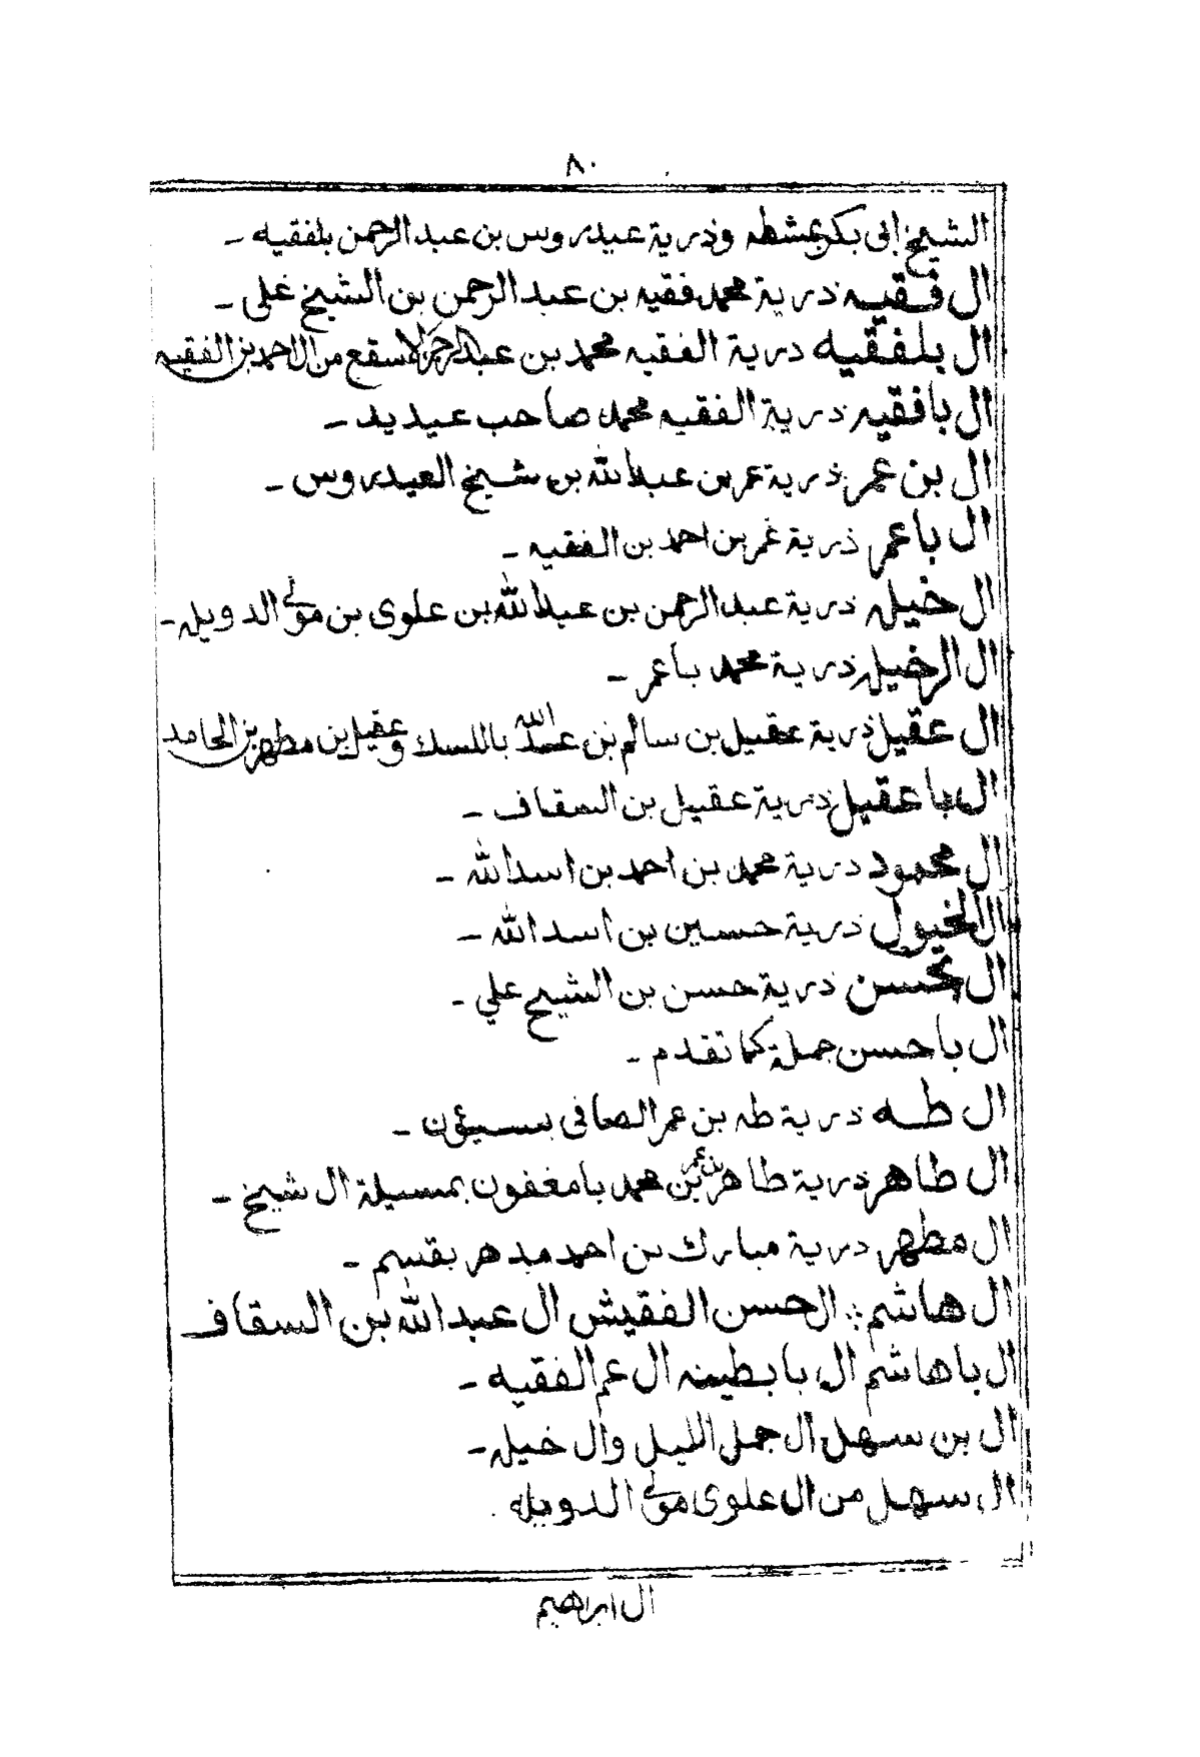 ٨٠
الشيخ ابى بكر بمشطه وذرية عيدروس بن عبدالرحمن بلفقيه ـ
ال فقيه ذرية محمد فقيه بن عبد الرحمن بن الشيخ على ـ
ال بلفقيه ذرية الفقيه محمد بن عبدالرحمن الاسقع من ال احمد بن الفقيه
ال بافقيه ذرية الفقيه محمد صاحب عيديد ـ
ال بن عمر ذرية عمر بن عبدالله بن شيخ العيدروس ـ
ال باعمر ذرية عمر بن احمد بن الفقيه ـ
ال خيله ذرية عبد الرحمن بن عبدالله بن علوى بن مولى الدويله ـ
ال الرخيله ذرية محمد باعمر ـ
ال عقيل ذرية عقيل بن سالم بن عبدالله باللسك وعقيل بن مطهر بن الحامد
ال باعقيل ذرية عقيل بن السقاف ـ
ال محمود ذرية محمد بن احمد بن اسدالله ـ
ال الخيول ذرية حسين بن اسد الله ـ
ال بحسن ذرية حسن بن الشيخ علي ـ
ال باحسن جملة كما تقدم ـ
ال طـه ذرية طه بن عمر الصافى بسيؤن ـ
ال طاهر ذرية طاهر بن عمر بن محمد بامغفون بمسيلة ال شيخ ـ
ال مطهر ذرية مبارك بن احمد مدهر بقسم ـ
ال هاشم : ال حسن الفقيش ال عبدالله بن السقاف
ال باهاشم ال بابطينه ال عم الفقيه ـ
ال بن سهل ال جمل الليل وال خيله ـ
ال سهل من ال علوى مولى الدويله .
ال ابراهيم